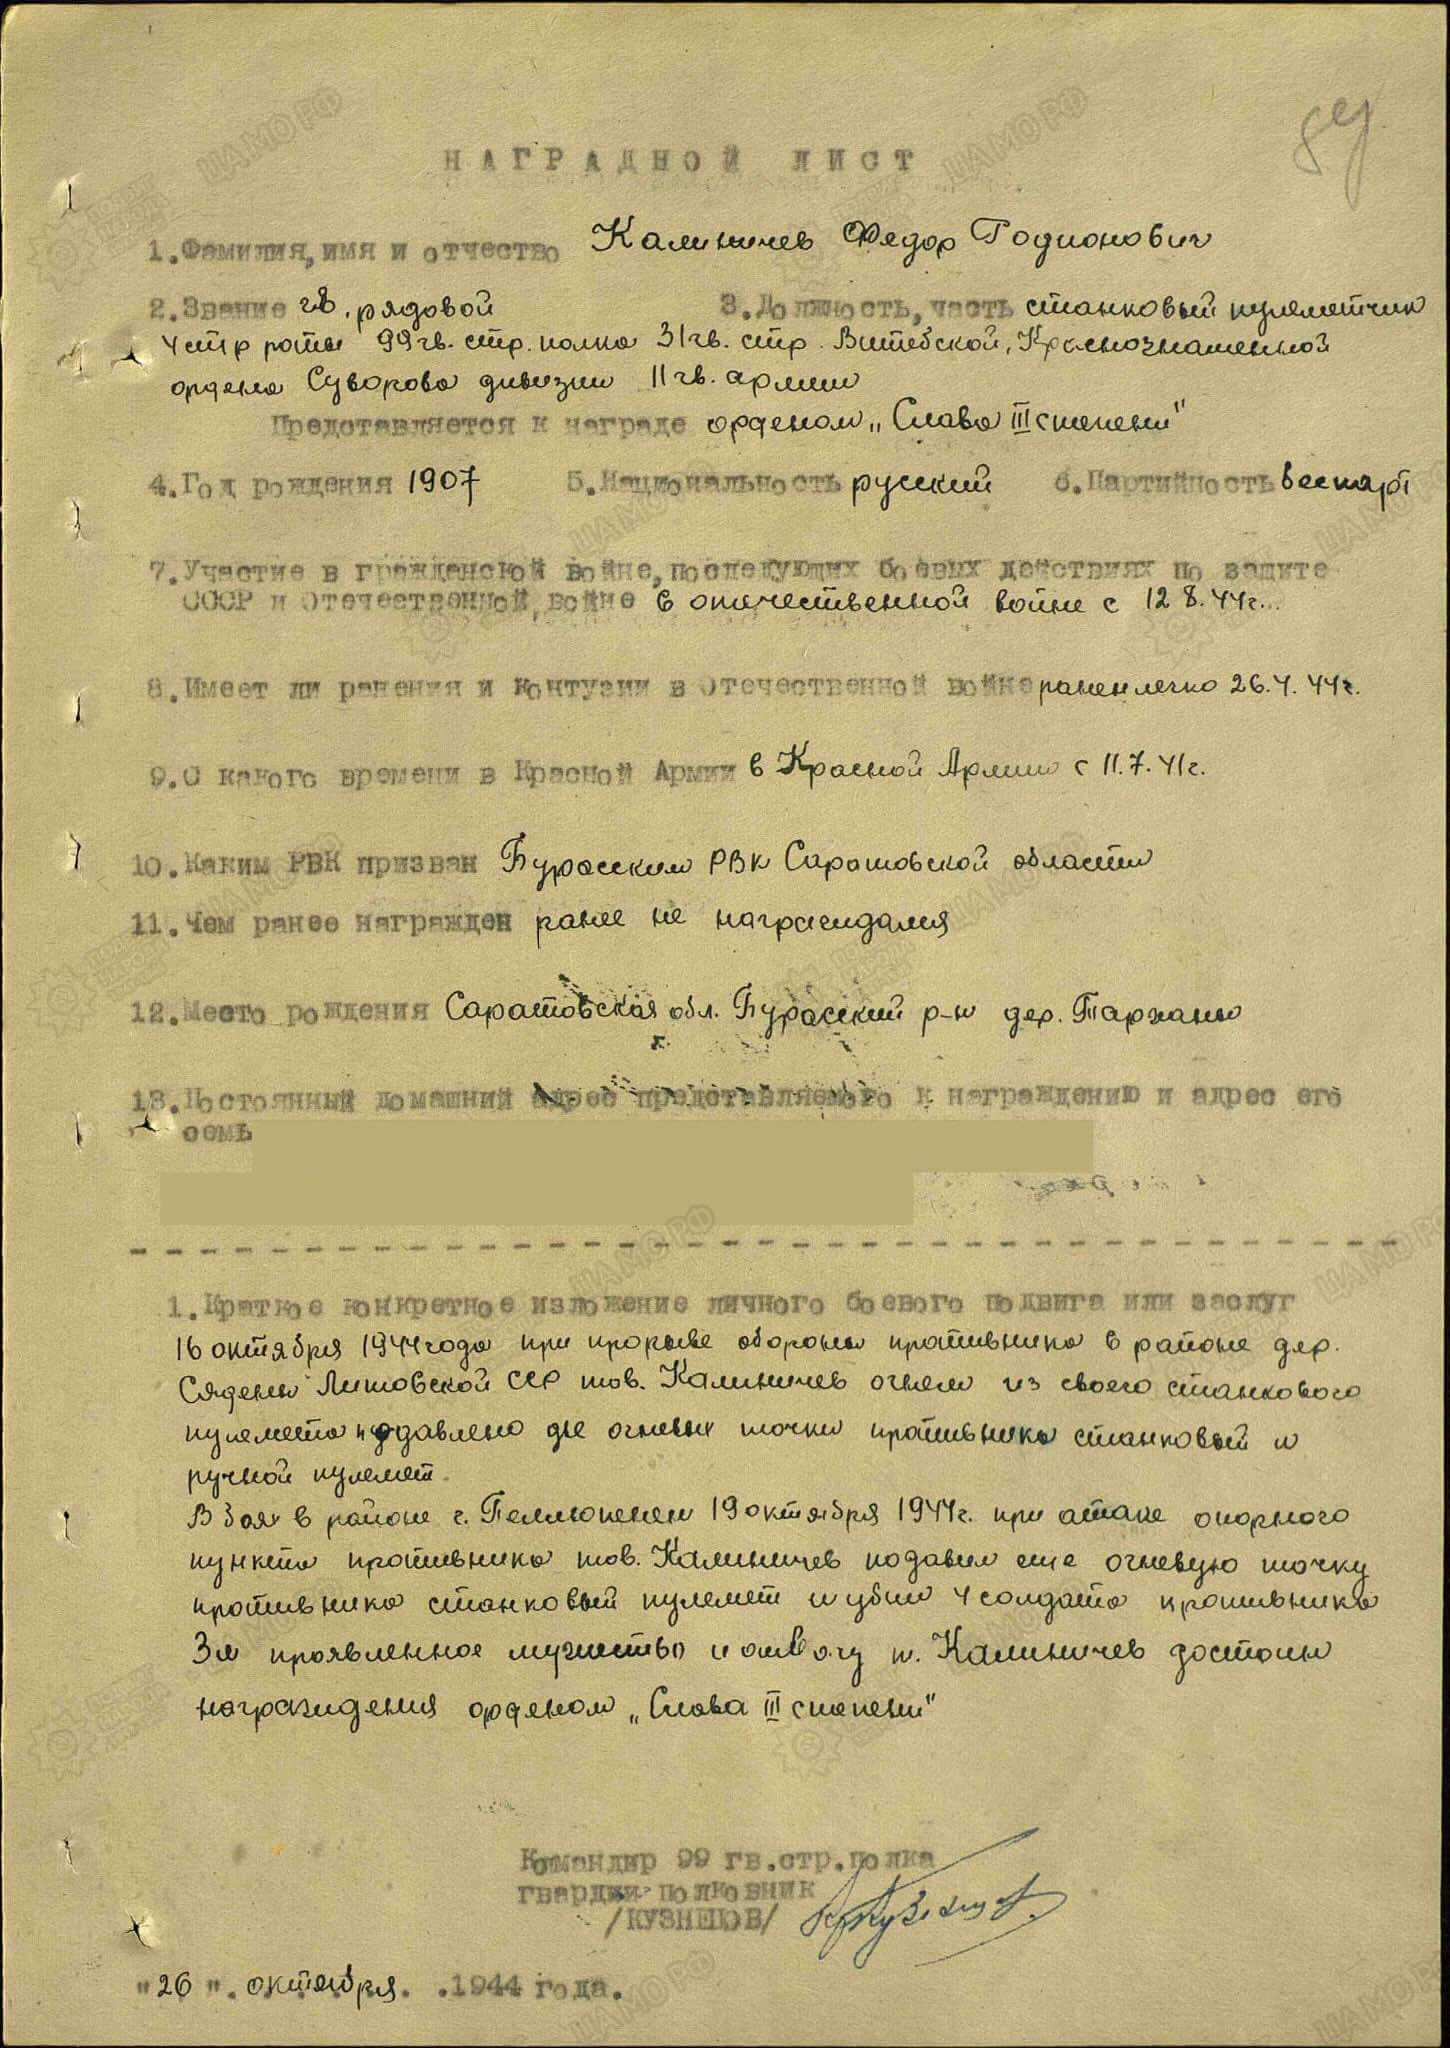 НАГРАДНОЙ ЛИСТ
1.Фамилия, имя и отчество Калиничев Федор Родионович
2.Звание гв. рядовой 3.Должность, часть станковый пулеметчик
4 стр роты 99 гв. стр. полка 31 гв. стр. Витебской, Краснознаменной
ордена Суворова дивизии 11 гв. армии
Представляется к награде орденом „Слава III степени"
4.Год рождения 1907 5.Национальность русский 6.Партийность беспарт
7.Участие в гражданской войне, последующих боевых действиях по защите
СССР и Отечественной войне в отечественной войне с 12 8. 44г.
8.Имеет ли ранения и контузии в Отечественной войне ранен легко 26. 4. 44г.
9.С какого времени в Красной Армии в Красной Армии с 11. 7. 41г.
10.Каким РВК призван Бурасским РВК Саратовской области
11.Чем ранее награжден ранее не награждался
12.Место рождения Саратовская обл. Бурасский р-н дер. Тарханы
13.Постоянный домашний адрес представляемого к награждению и адрес его
семь
1.Краткое конкретное изложение личного боевого подвига или заслуг
16 октября 1944 года при прорыве обороны противника в районе дер.
Сядены Литовской ССР тов. Калиничев огнем из своего станкового
пулемета подавлено две огневых точки противника станковый и
ручной пулемет.
В боях в районе г. Пеллюпенен 19 октября 1944г. при атаке опорного
пункта противника тов. Калиничев подавил еще огневую точку
противника станковый пулемет и убил 4 солдата противника
За проявленное мужество и отвагу т. Калиничев достоин
награждения орденом „Слава III степени"
Командир 99 гв.стр.полка
гвардии полковник
/КУЗНЕЦОВ/
"26" октября 1944 года.
ЦАМО РФ